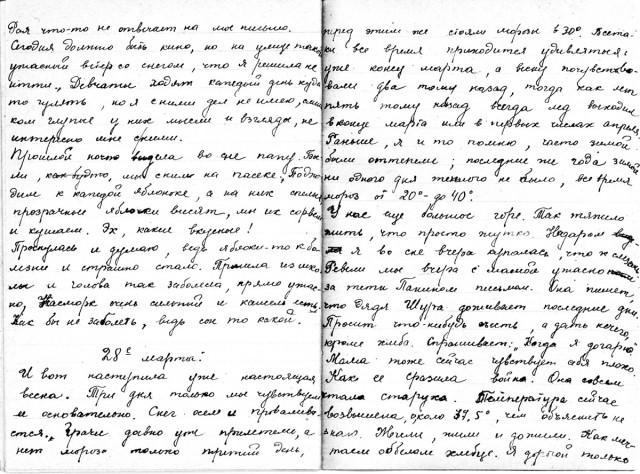 Рая что-то не отвечает на мое письмо.
Сегодня должно быть кино, но на улице такой
ужасный ветер со снегом, что я решила не
идти. Девчата ходят каждый день куда
то гулять, но я с ними дел не имею, слиш
ком глупые у них мысли и взгляды, не
интересно мне с ними.
Прошлой ночью видела во сне папу. Бы
ли, как будто, мы с ним на пасеке. Подхо
дим к каждой яблоньке, а на них спелые
прозрачные яблоки висят, мы их сорвем
и кушаем. Эх, какие вкусные!
Проснулась и думаю, ведь яблоки-то к бо
лезни и страшно стало. Пришла из шко
лы и голова так заболела, прямо ужас
но, Насморк очень сильный и кашель есть.
Как бы не заболеть, ведь сон то какой.
28е марта:
И вот наступила уже настоящая
весна. Три дня только мы чувствуем
ее основательно. Снег осел и провалива-
ется. Грачи давно уже прилетели, а
нет мороз только третий день,
перед этим же стояли морозы в 30°. Вста
ки все время приходится удивляться:
уже конец марта, а весну почувство-
вали два тому назад, тогда как лет
пять тому назад всегда лед выходил
в конце марта или в первых числах апреля.
Раньше, я и то помню, часто зимой
были оттепели; последние же года зимой
ни одного дня теплого не было, все время
мороз от 20°- до 40°.
У нас еще большое горе. Так тяжело
жить, что просто жутко. Недаром
я во сне вчера купалась, что ж
Ревели мы вчера с мамой ужасно
за тети Паниным письмам. Она пишет,
что Дядя Шура доживает последние дни.
Просит что-нибудь съесть, а дать нечего,
кроме хлеба. Спрашивает: "Когда я догорю
Мама тоже сейчас чувствует себя плохо.
Как ее сразила война. Она совсем
стала старуха. Температура сейчас
возвышена, около 37,5°, чем объяснить не
знаю. Жили, жили и дожили. Как меч-
таем о белом хлебце. Я другой только